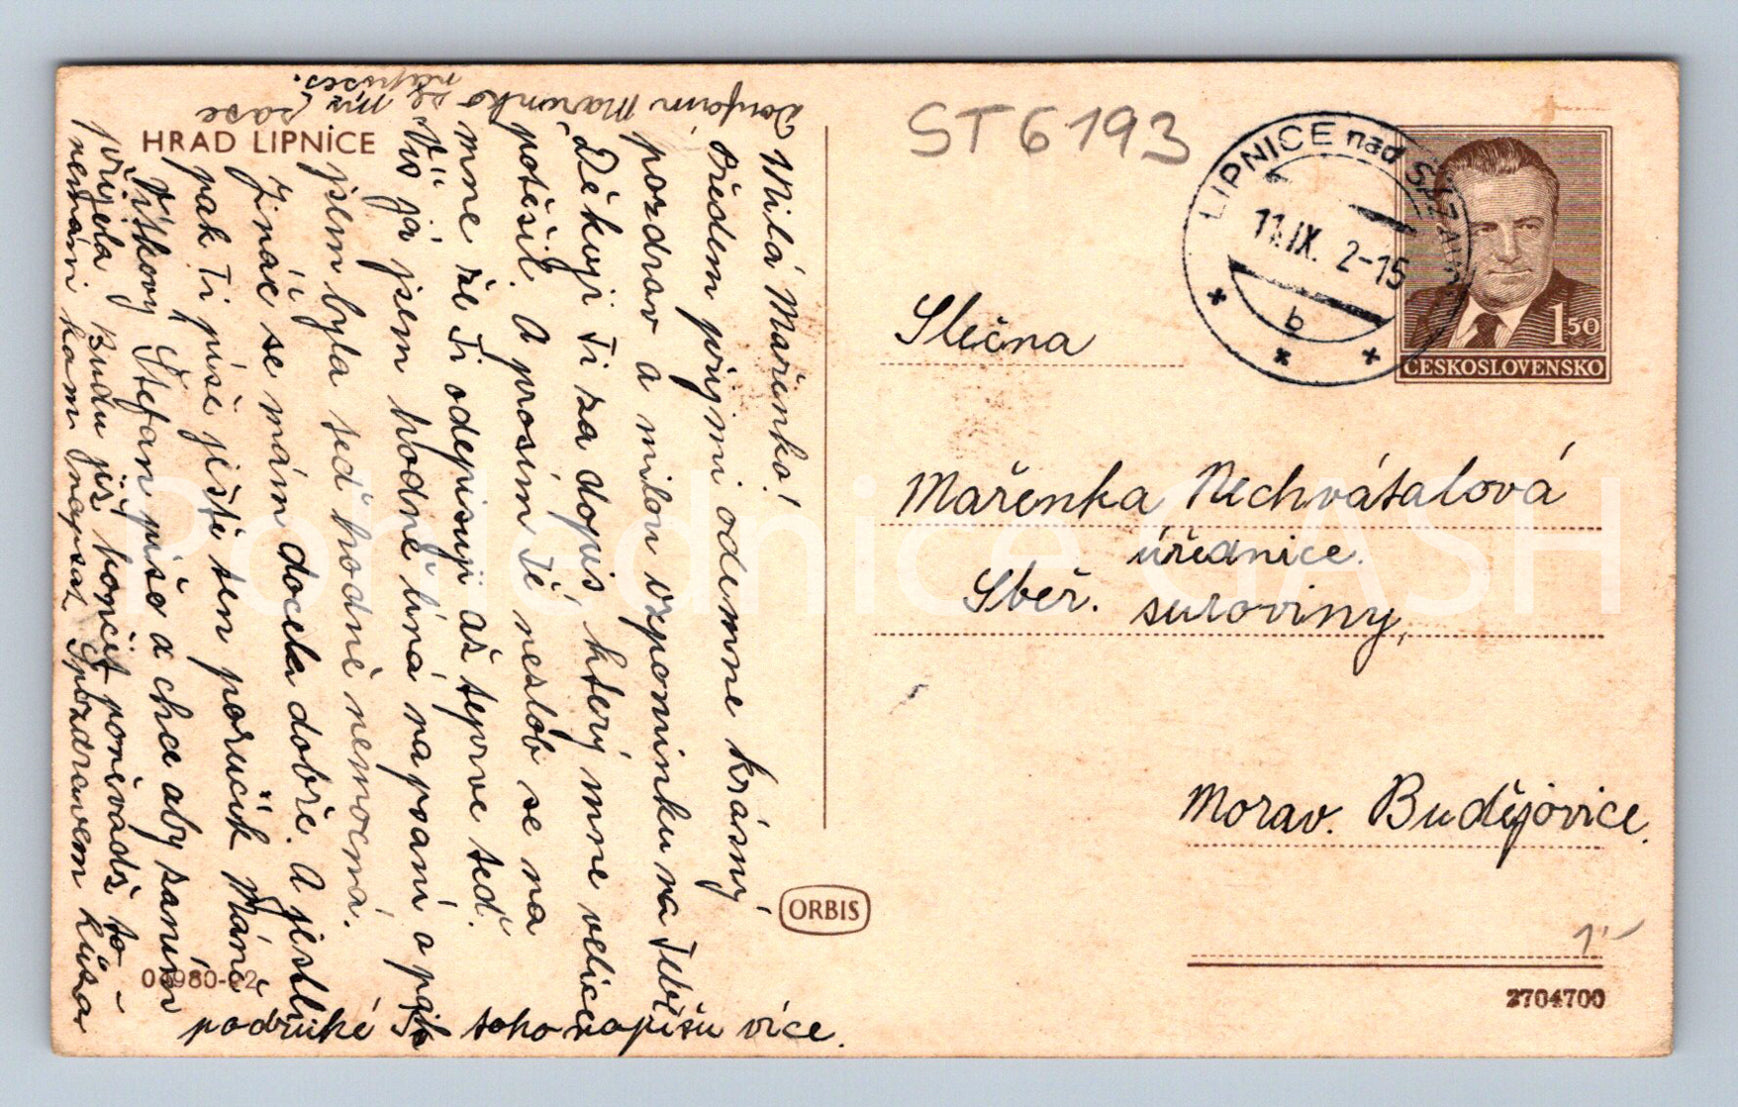 HRAD LIPNICE
Milá Mařenko!
Předem přijmi odemne krásný
pozdrav a milou vzpomínku na Tebe
Děkuji Ti za dopis, který mne velice
potěšil. A prosím Tě nezlob se na
mne že Ti odepisuji až teprve teď.
Víš já jsem hodně líná na psaní a pak
jsem byla teď hodně nemocná.
Jináč se mám docela dobře. A jestli
pak Ti píše ještě ten poručík Máně
Vítkovy Štefan píše a chce aby za ním
přijela Budu již končit poněvadž to
nemám kam napsat. S pozdravem Lůsa
podruhé Ti toho napíšu více.
Doufám Mařenko že mi zase
napíšeš.
ST 6193
LIPNICE nad SÁZAVOU
11.IX. 2-15
b
150
ČESKOSLOVENSKO
Slečna
Mařenka Nechvátalová
úřednice.
Sběr. suroviny,
Morav. Budějovice.
ORBIS
1'-
2704700
Pohlednice GASH